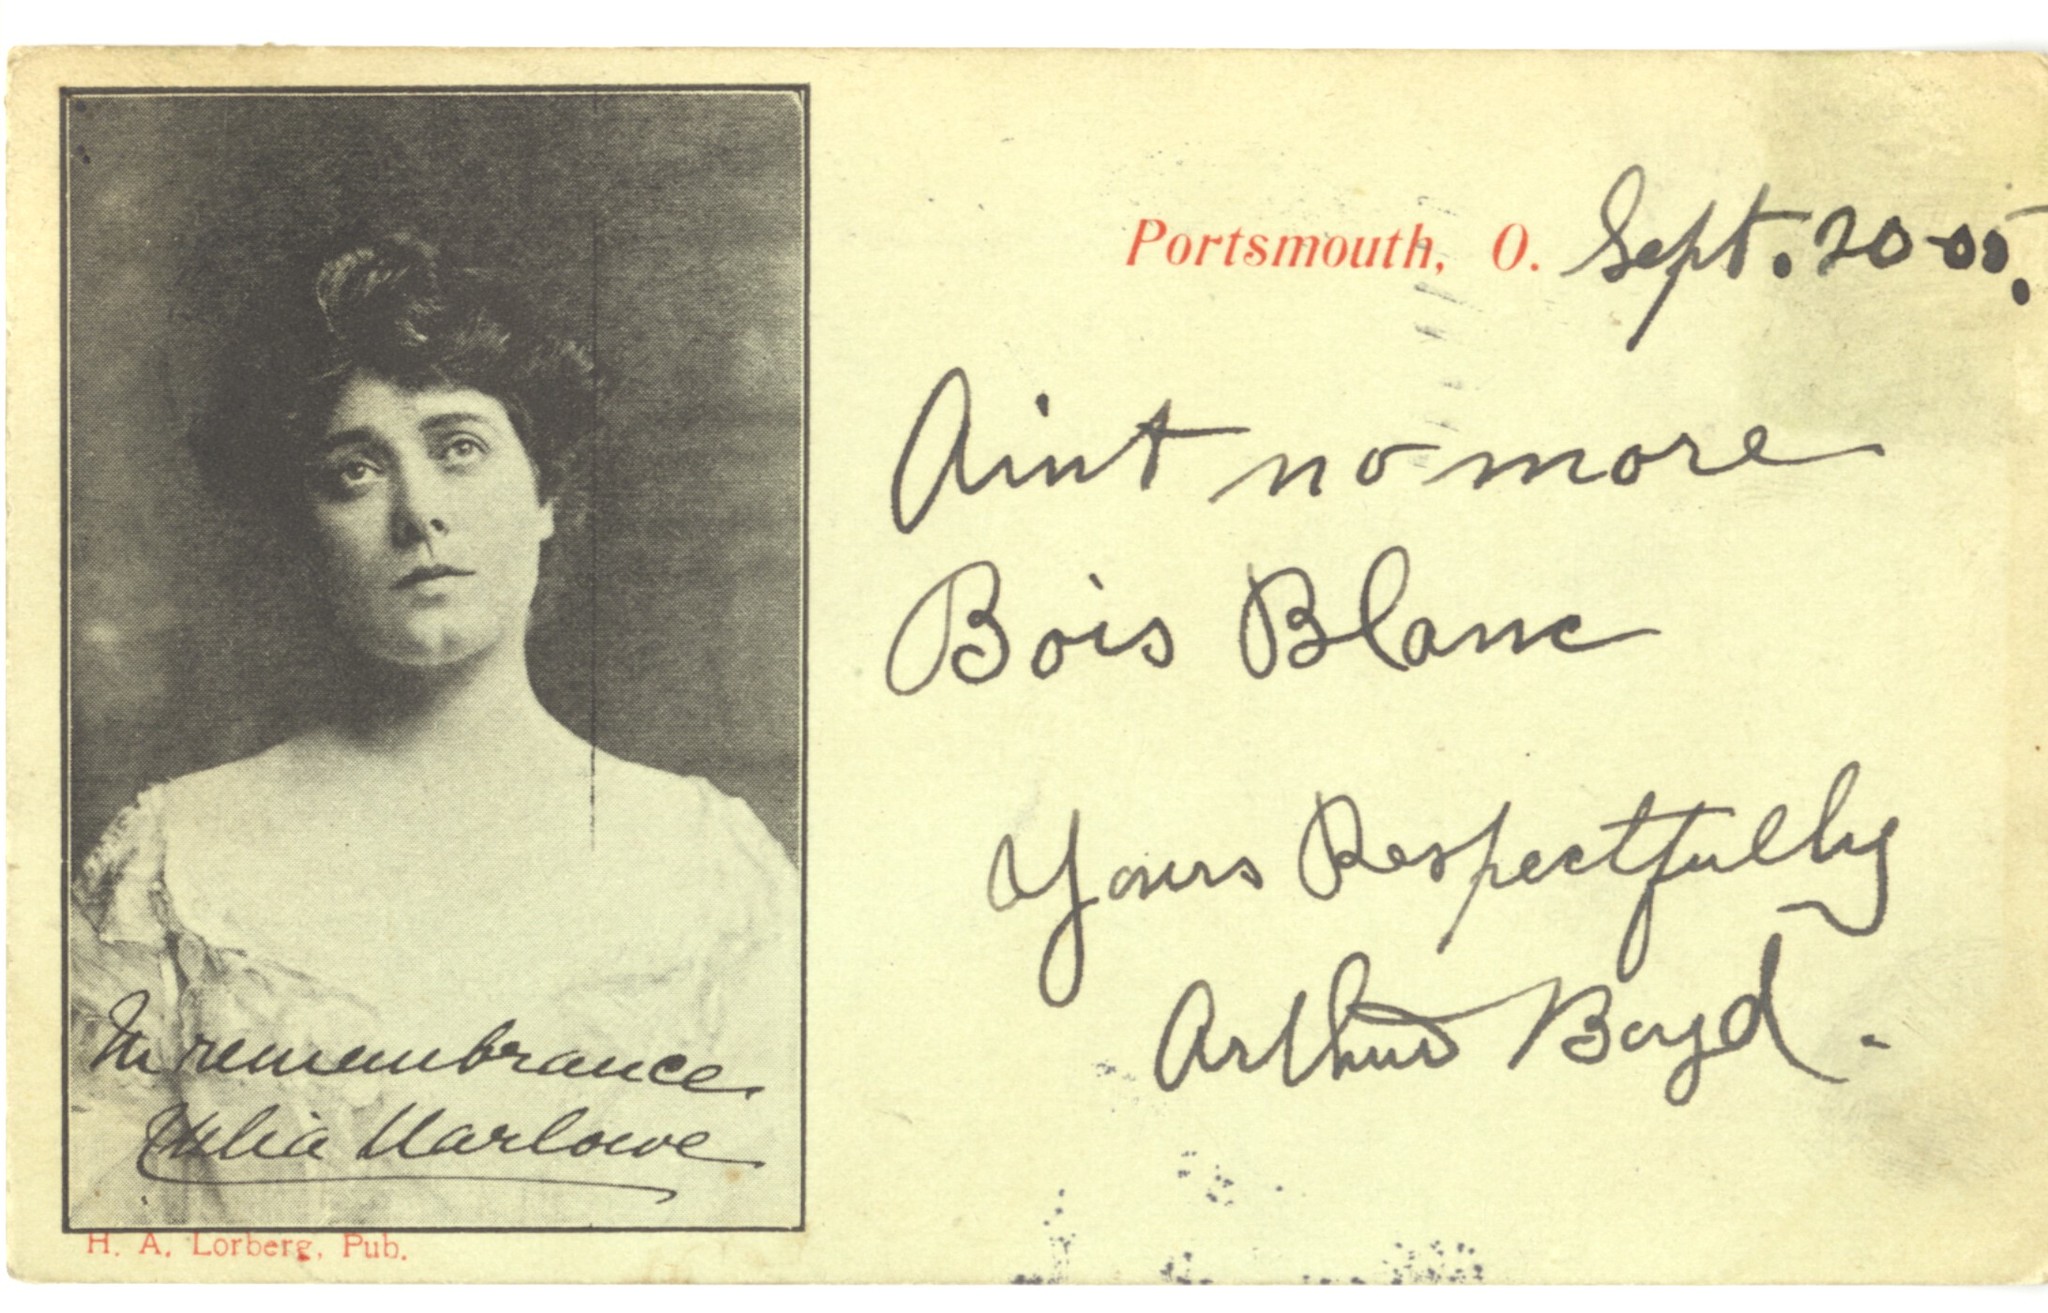 Portsmouth, O. Sept. 20-05.
Aint no more
Bois Blanc
Yours Respectfully
Arthur Boyd.
In remembrance
Julia Marlowe
H. A. Lorberg, Pub.